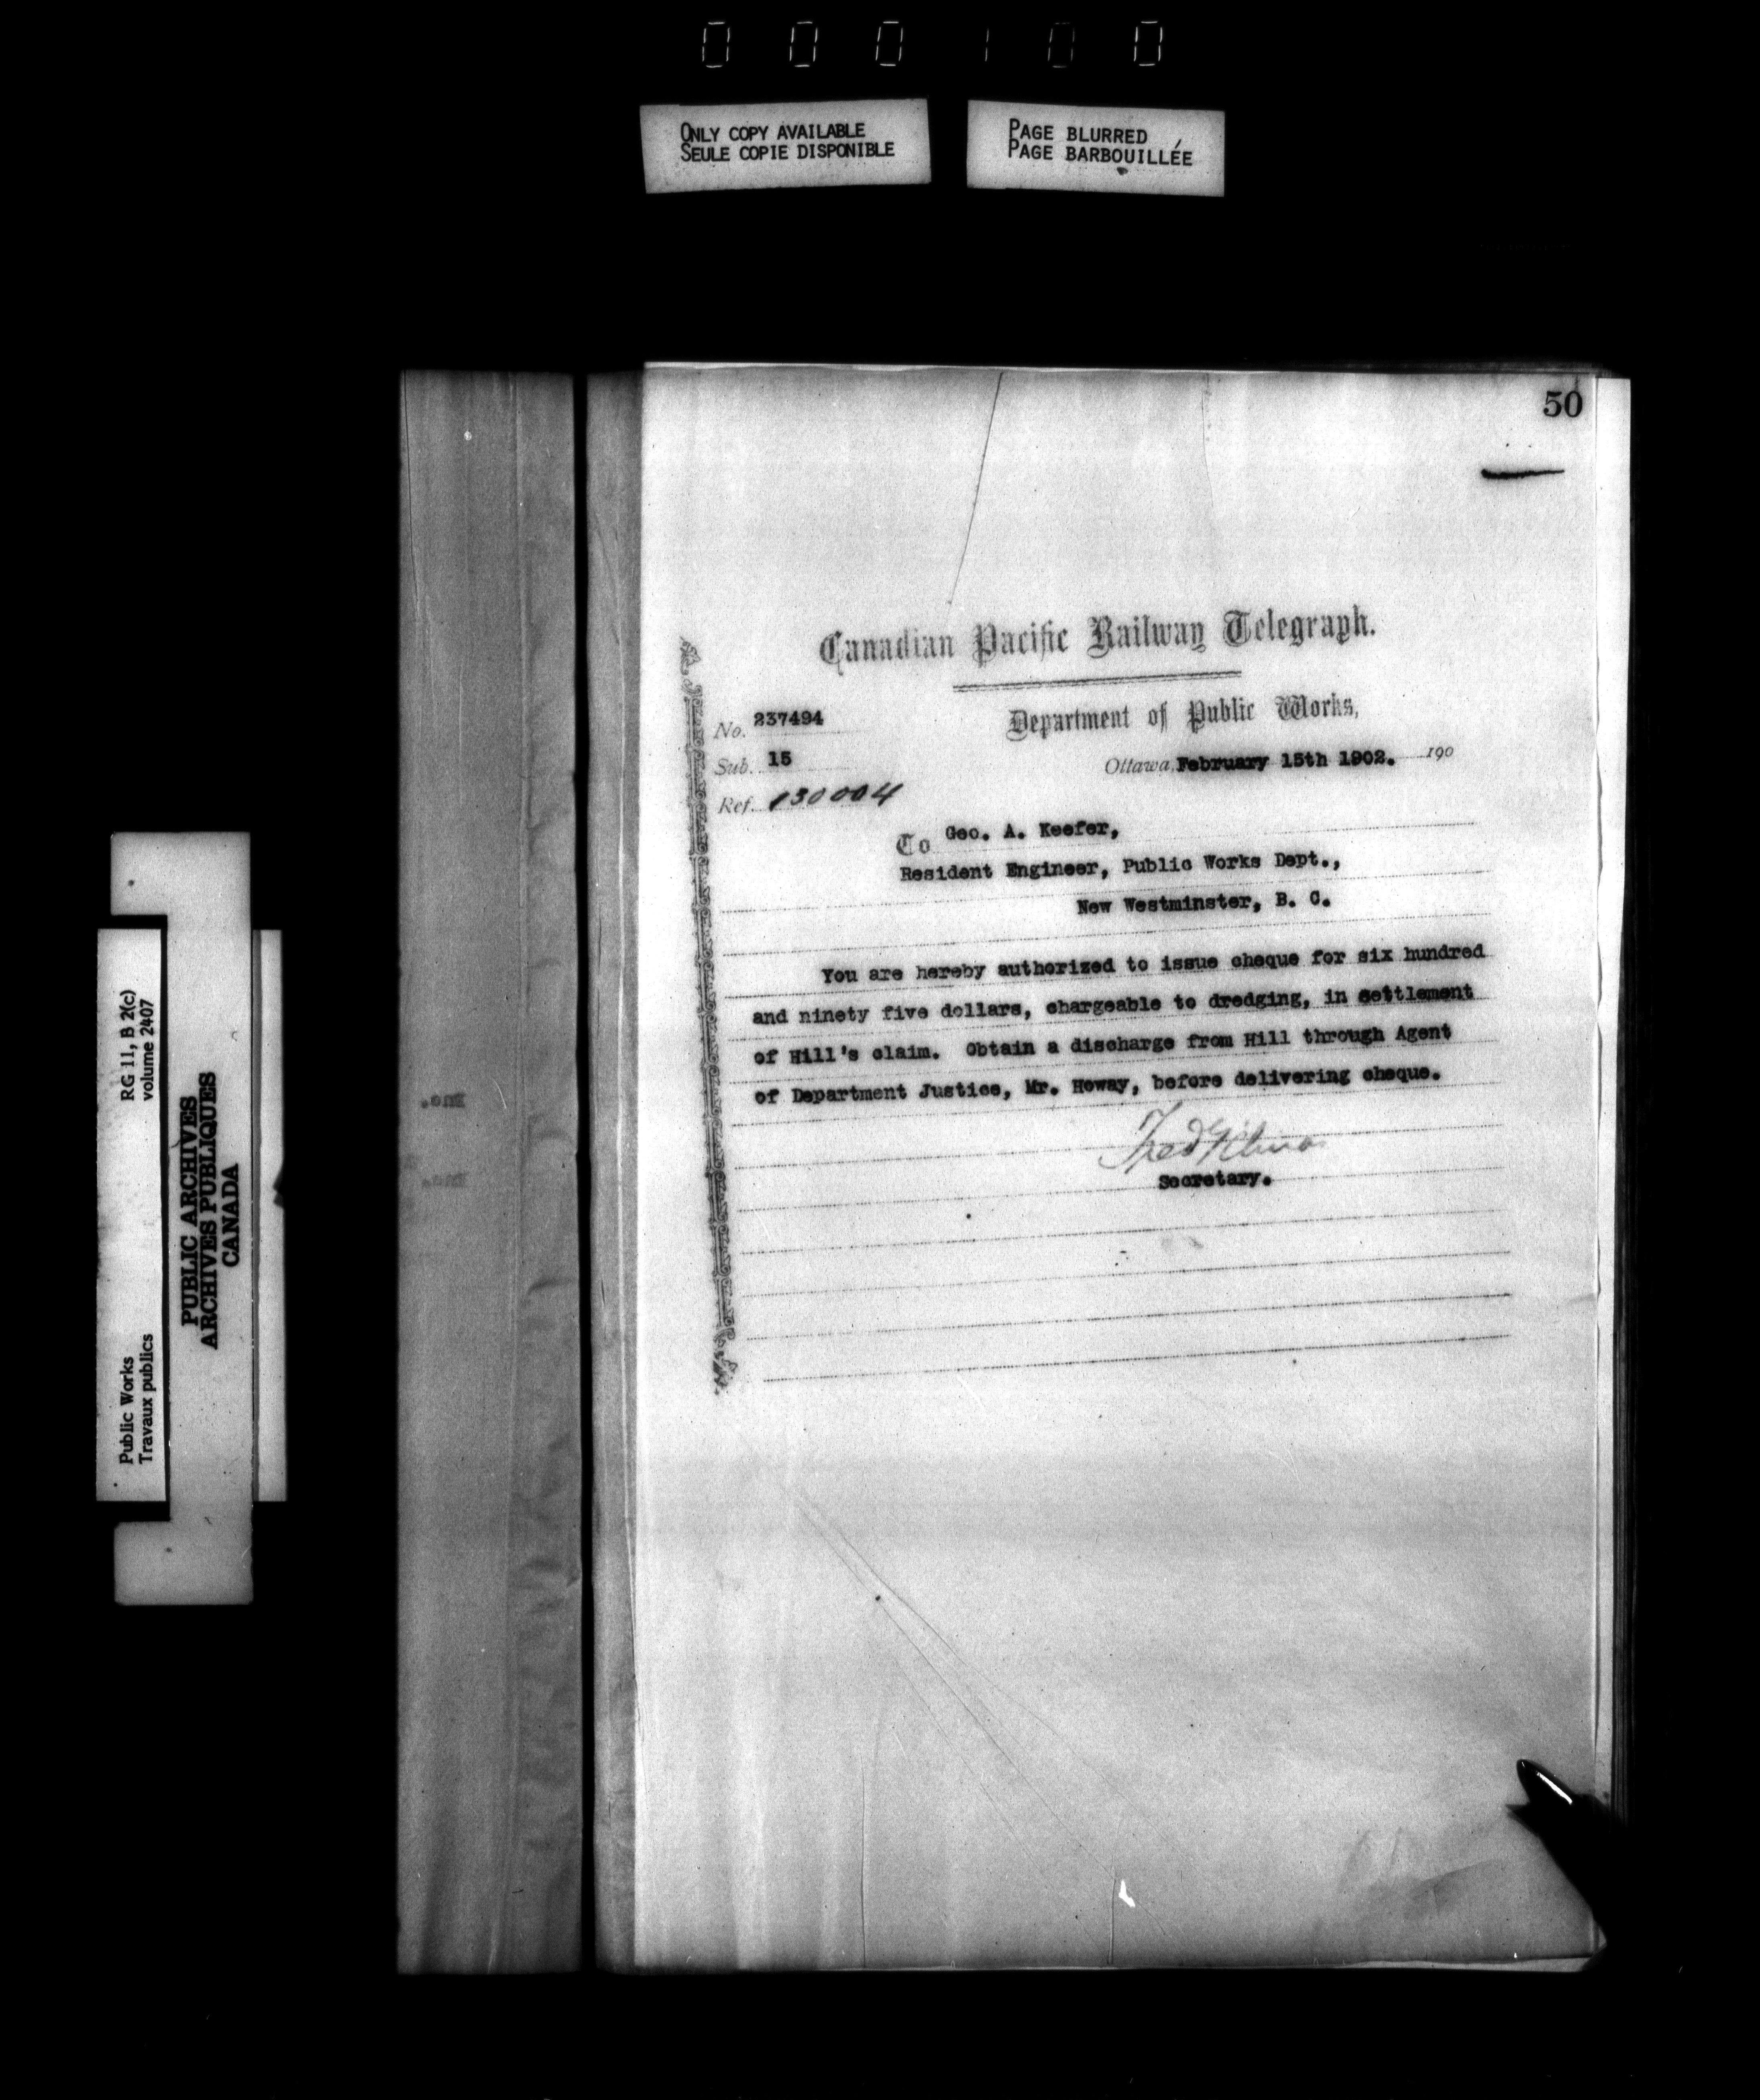 000100
ONLY COPY AVAILABLE
SEULE COPIE DISPONIBLE
PAGE BLURRED
PAGE BARBOUILLÉE
50
Canadian Pacific Railway Telegraph.
Department of Public Works,
No. 237494
Sub. 15
Ottawa, February 15th 1902. 190
Ref. 130004
To Geo. A. Keefer,
Resident Engineer, Public Works Dept.,
New Westminster, B. C.
You are hereby authorized to issue cheque for six hundred
and ninety five dollars, chargeable to dredging, in settlement
of Hill's claim. Obtain a discharge from Hill through Agent
of Department Justice, Mr. Howay, before delivering cheque.
Fred
Secretary.
RG 11, B 2(c)
volume 2407
PUBLIC ARCHIVES
ARCHIVES PUBLIQUES
CANADA
Public Works
Travaux publics